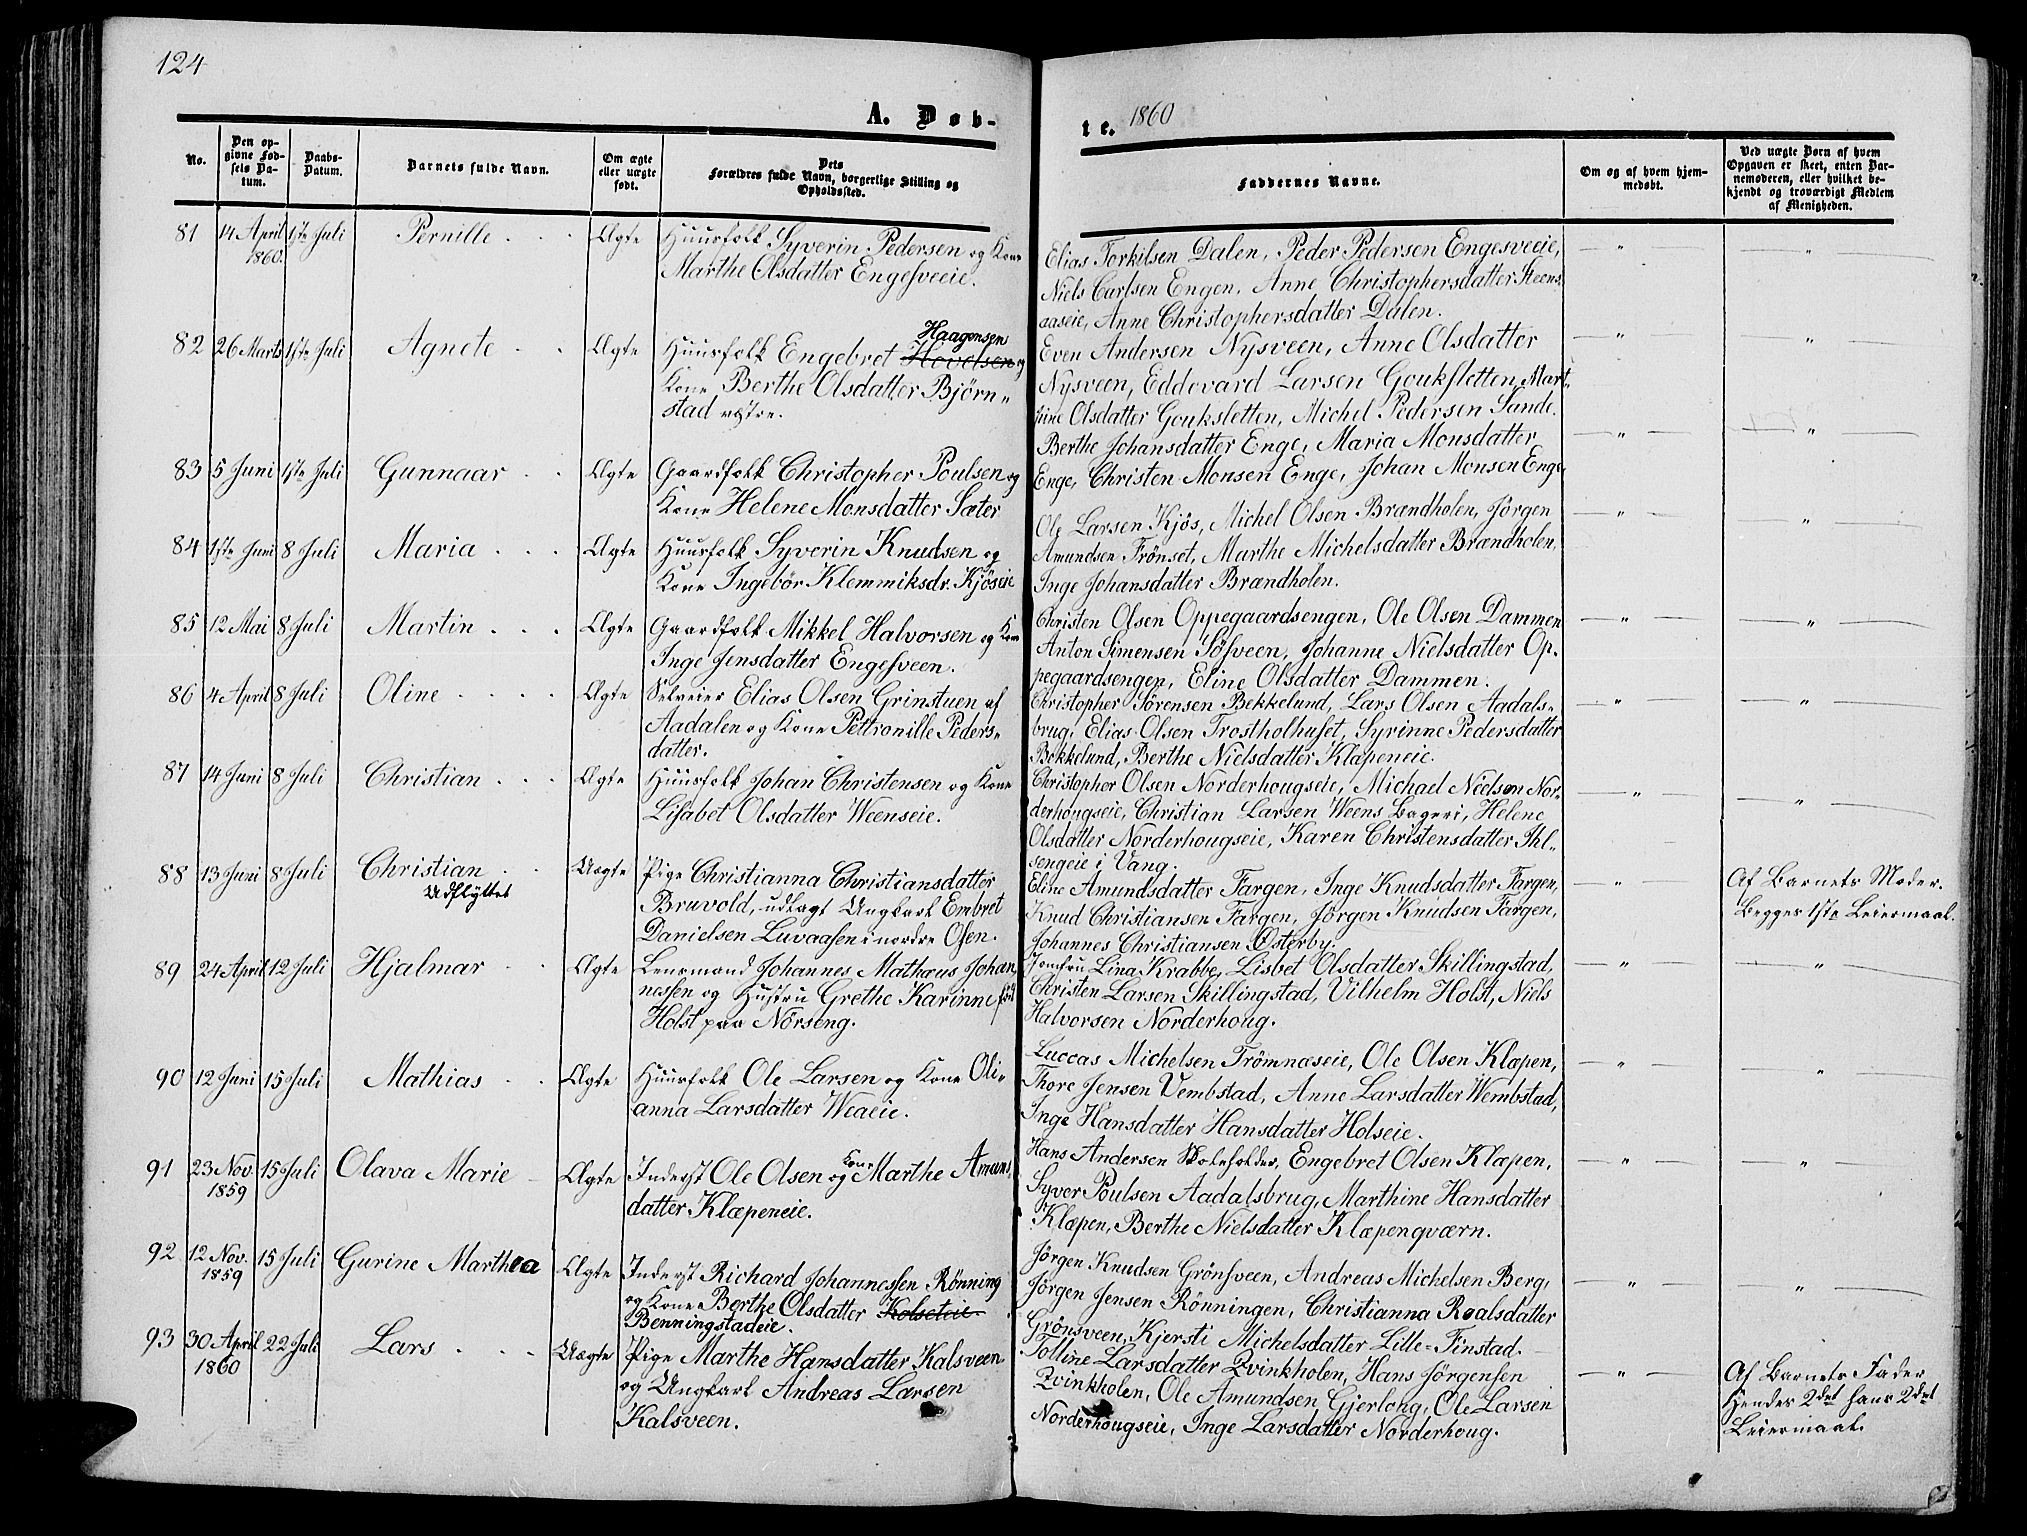 124
A. Døb-
te. 1860
No.
Den opgivne Fødsels Datum.
Daabs-Datum.
Barnets fulde Navn.
Om ægte eller uægte født.
Dets Forældres fulde Navn, borgerlige Stilling og Opholdssted.
Faddernes Navne.
Om og af hvem hjemmedøbt.
Ved uægte Børn af hvem Opgaven er skeet, enten Barnemoderen, eller hvilket bekjendt og troværdigt Medlem af Menigheden.
81 14 April 1860. 1ste Juli Pernille Ægte Huusfolk Syverin Pedersen og Kone
Marthe Olsdatter Engesveeie.
Elias Torkilsen Dalen, Peder Pedersen Engesveeie,
Niels Carlsen Engen, Anne Christophersdatter Steens
aaseie, Anne Christophersdatter Dalen.
82 26 Marts 1ste Juli Agnete Ægte Huusfolk Engebret Hovelsen Haagensen og
Kone Berthe Olsdatter Bjørn-
stad vestre.
Even Andersen Nysveen, Anne Olsdatter
Nysveen, Eddevard Larsen Gouksletten, Mart-
hine Olsdatter Gouksletten, Michel Pedersen Sande.
83 5 Juni 1ste Juli Gunnaar Ægte Gaardfolk Christopher Poulsen og
Kone Helene Monsdatter Sæter
Berthe Johansdatter Enge, Maria Monsdatter
Enge, Christen Monsen Enge, Johan Monsen Enge,
84 1ste Juni 8 Juli Maria Ægte Huusfolk Syverin Knudsen og
Kone Ingebør Klemmiksdr. Kjøseie
Ole Larsen Kjøs, Michel Olsen Brændholen, Jörgen
Amundsen Frönset, Marthe Michelsdatter Brændholen,
Inge Johansdatter Brændholen.
85 12 Mai 8 Juli Martin Ægte Gaardfolk Mikkel Halvorsen og Kone
Inge Jensdatter Engesveen.
Christen Olsen Oppegaardsengen, Ole Olsen Dammen
Anton Simensen Söfveen, Johanne Nielsdatter Op-
pegaardsengen, Eline Olsdatter Dammen.
86 4 April 8 Juli Oline Ægte Selveier Elias Olsen Grinstuen af
Aadalen og Kone Pettronille Peders-
datter.
Christopher Sörensen Bekkelund, Lars Olsen Aadals-
brug, Elias Olsen Trostholhuset, Syrinne Pedersdatter
Bekkelund, Berthe Nielsdatter Klæpeneie.
87 14 Juni 8 Juli Christian Ægte Huusfolk Johan Christensen og Kone
Lisabet Olsdatter Weenseie.
Christopher Olsen Norderhougseie, Michael Nielsen Nor-
derhougseie, Christian Larsen Weens Bageri, Helene
Olsdatter Norderhougseie, Karen Christensdatter Ihl-
sengeie i Vang.
88 13 Juni 8 Juli Christian Udflyttet Uægte Pige Christianna Christiansdatter
Bruvold, udlagt Ungkarl Embret
Danielsen Luvaasen i nordre Osen.
Eline Amundsdatter Fargen, Inge Knudsdatter Fargen,
Knud Christiansen Fargen, Jörgen Knudsen Fargen,
Johannes Christiansen Österby.
Af Barnets Moder.
Begges 1ste Leiermaal.
89 24 April 12 Juli Hjalmar Ægte Lensmand Johannes Mathæus Johan-
nessen og Hustru Grethe Karinne född
Holst paa Nörseng.
Jomfru Lina Krabbe, Lisbet Olsdatter Skillingstad,
Christen Larsen Skillingstad, Vilhelm Holst, Niels
Halvorsen Norderhoug.
90 12 Juni 15 Juli Mathias Ægte Huusfolk Ole Larsen og Kone Oli-
anna Larsdatter Weaeie.
Luccas Michelsen Trömnæseie, Ole Olsen Klæpen,
Thore Jensen Vembstad, Anne Larsdatter Wembstad,
Inge Hansdatter Hansdatter Holseie.
91 23 Nov 1859 15 Juli Olava Marie Ægte Inderst Ole Olsen og Kone Marthe Amunds
datter Klæpeneie.
Hans Andersen Skoleholder, Engebret Olsen Klæpen,
Syver Poulsen Aadalsbrug, Marthine Hansdatter
Klæpen, Berthe Nielsdatter Klæpenqværn.
92 12 Nov. 1859 15 Juli Gurine Marthea Ægte Inderst Richard Johannessen Rønning
og Kone Berthe Olsdatter Kolseteie
Benningstadeie.
Jörgen Knudsen Grönsveen, Andreas Michelsen Berg,
Jörgen Jensen Rönningen, Christianna Roalsdatter
Grönsveen, Kjersti Michelsdatter Lille-Finstad.
93 30 April 1860 22 Juli Lars Uægte Pige Marthe Hansdatter Kalsveen
og Ungkarl Andreas Larsen
Kalsveen.
Tolline Larsdatter Kvinkholen, Hans Jörgensen
Kvinkholen, Ole Amundsen Gjerlong, Ole Larsen
Norderhougseie, Inge Larsdatter Norderhoug.
Af Barnets Fader
Hendes 2det hans 2det
Leiermaal.